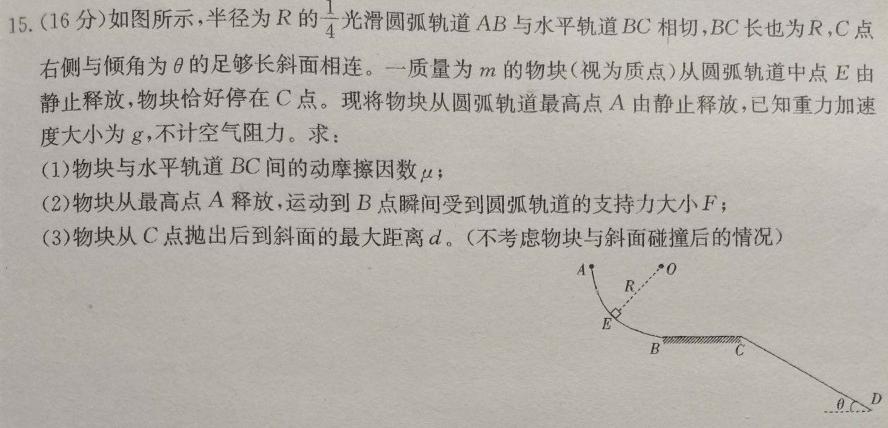 15.(16分)如图所示,半径为R的1/4光滑圆弧轨道AB与水平轨道BC相切,BC长也为R,C点
右侧与倾角为θ的足够长斜面相连。一质量为m的物块(视为质点)从圆弧轨道中点E由
静止释放,物块恰好停在C点。现将物块从圆弧轨道最高点A由静止释放,已知重力加速
度大小为g,不计空气阻力。求:
(1)物块与水平轨道BC间的动摩擦因数μ;
(2)物块从最高点A释放,运动到B点瞬间受到圆弧轨道的支持力大小F;
(3)物块从C点抛出后到斜面的最大距离d。(不考虑物块与斜面碰撞后的情况)
A O
R
E
B C
θ D